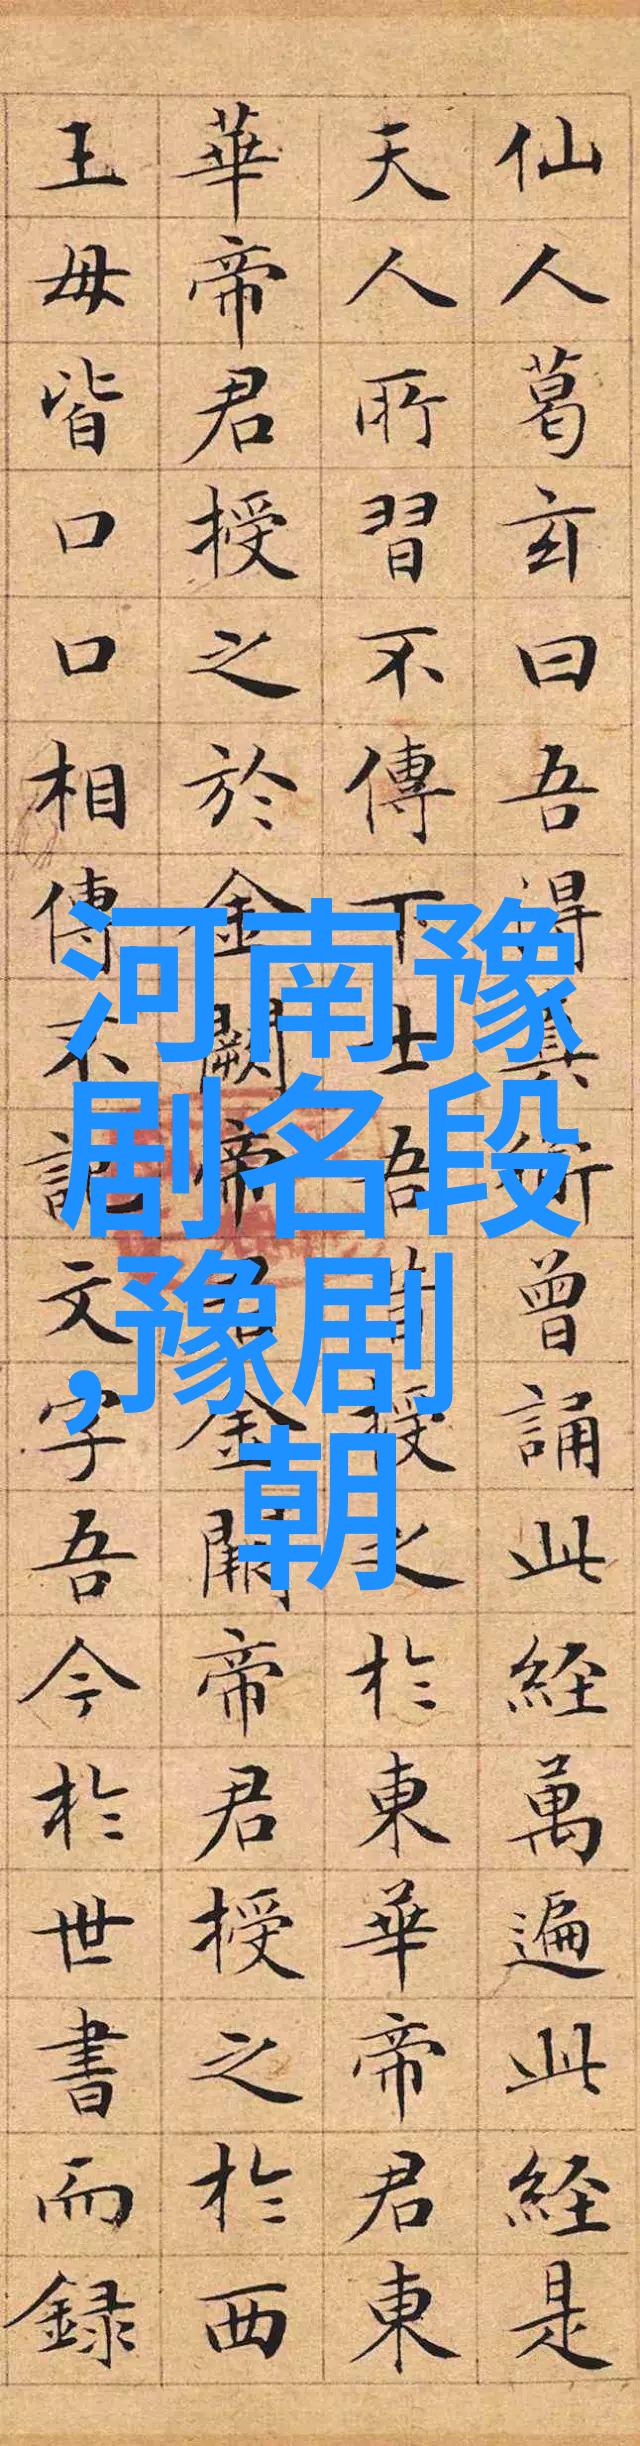 仙人葛玄曰吾得真術曾誦此経萬遍此経是
天人所習不傳下士吾昔授之於東華帝君東
華帝君授之於金闕帝君金闕帝君授之於西
王母皆口口相傳不記文字吾今於世書而録
河南豫
剧名段
,豫剧
朝